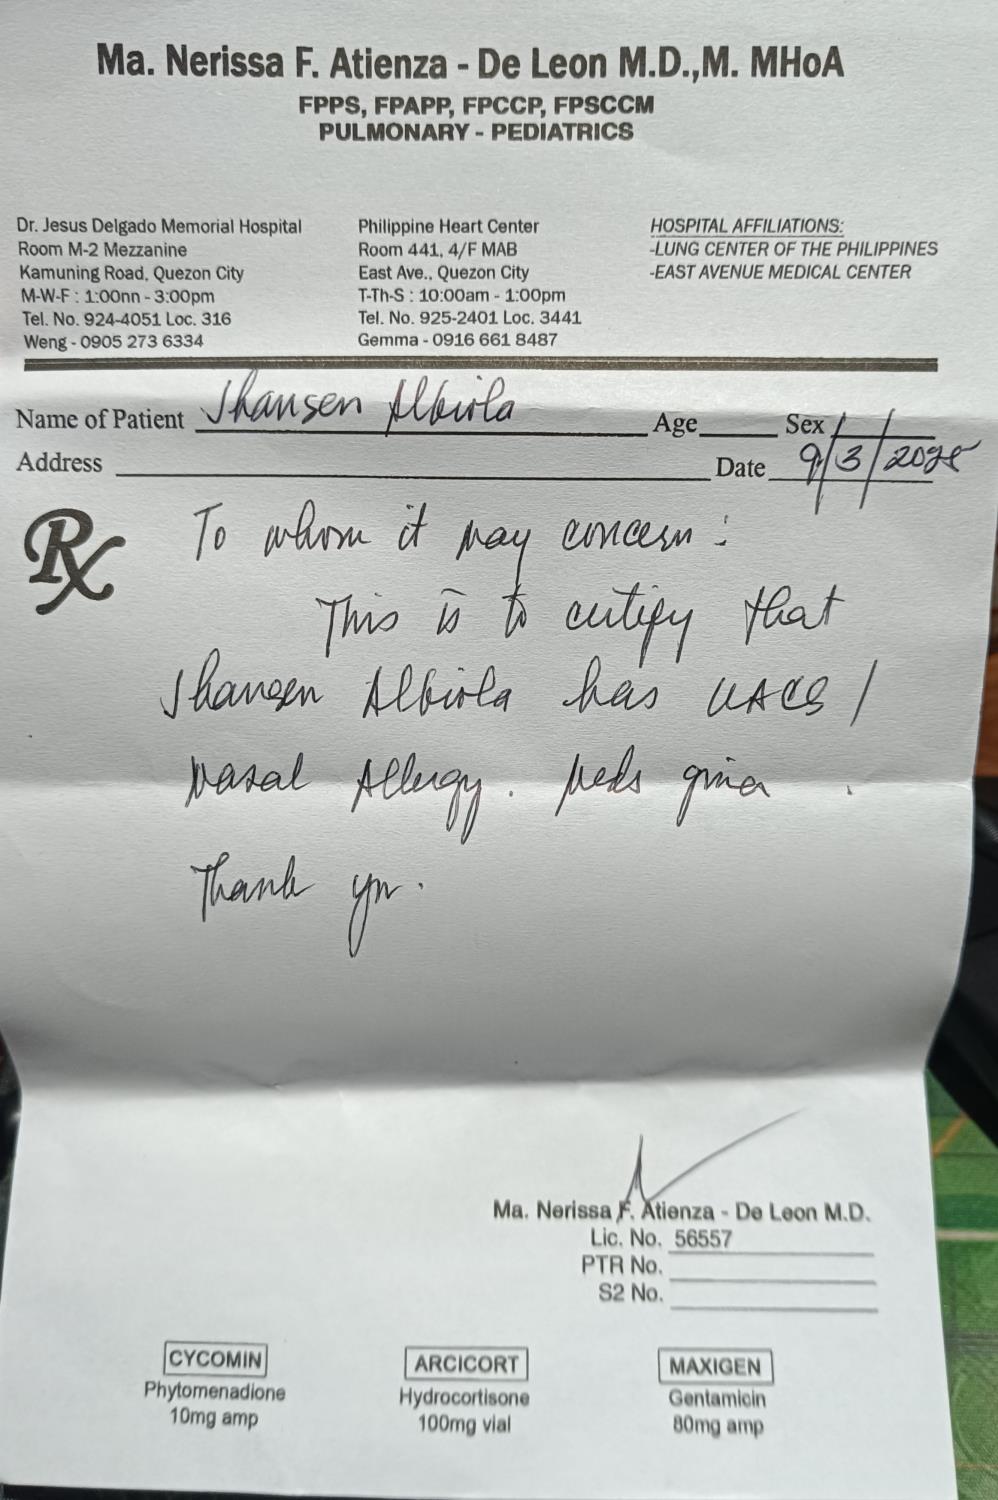 Ma. Nerissa F. Atienza - De Leon M.D.,M. MHoA
FPPS, FPAPP, FPCCP, FPSCCM
PULMONARY - PEDIATRICS
Dr. Jesus Delgado Memorial Hospital
Room M-2 Mezzanine
Kamuning Road, Quezon City
M-W-F : 1:00nn - 3:00pm
Tel. No. 924-4051 Loc. 316
Weng - 0905 273 6334
Philippine Heart Center
Room 441, 4/F MAB
East Ave., Quezon City
T-Th-S : 10:00am - 1:00pm
Tel. No. 925-2401 Loc. 3441
Gemma - 0916 661 8487
HOSPITAL AFFILIATIONS:
-LUNG CENTER OF THE PHILIPPINES
-EAST AVENUE MEDICAL CENTER
Name of Patient Jhansen Albiola Age Sex
Address Date 9/3/2025
Rx
To whom it may concern :
This is to certify that
Jhansen Albiola has UACS /
Nasal Allergy. Meds given .
Thank you.
Ma. Nerissa F. Atienza - De Leon M.D.
Lic. No. 56557
PTR No.
S2 No.
CYCOMIN
Phytomenadione
10mg amp
ARCICORT
Hydrocortisone
100mg vial
MAXIGEN
Gentamicin
80mg amp